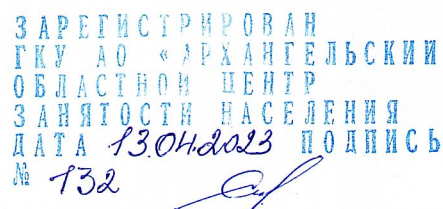 ЗАРЕГИСТРИРОВАН
ГКУ АО «АРХАНГЕЛЬСКИЙ
ОБЛАСТНОЙ ЦЕНТР
ЗАНЯТОСТИ НАСЕЛЕНИЯ
ДАТА 13.04.2023 ПОДПИСЬ
№ 132